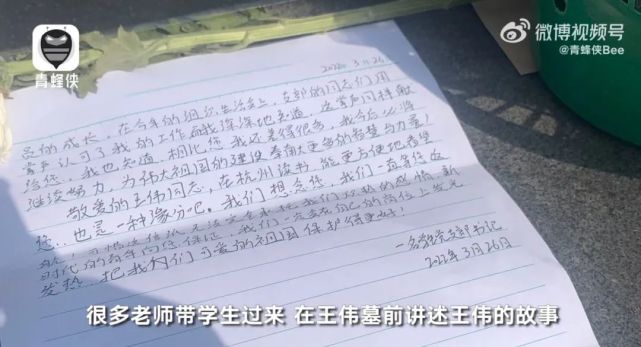 青蜂侠
微博视频号
@青蜂侠Bee
2022 3月26
员的成长。在今年的组织生活会上，支部的同志们用
掌声认可了我的工作 我深深地知道，这掌声同样献
给您。我也知道，相比您，我还差得很多，我今后必将
继续努力，为伟大祖国的建设奉献更多的智慧与力量！
敬爱的王伟同志，在杭州读书，能更方便地看望
您，也是一种缘分吧。我们想念您，我们一直等待您返
航！
时代的青年向您保证，我们一定会在自己的岗位上发光
发热，把我们可爱的祖国保护得更好！
一名学生党支部书记
2022年3月26日
很多老师带学生过来 在王伟墓前讲述王伟的故事